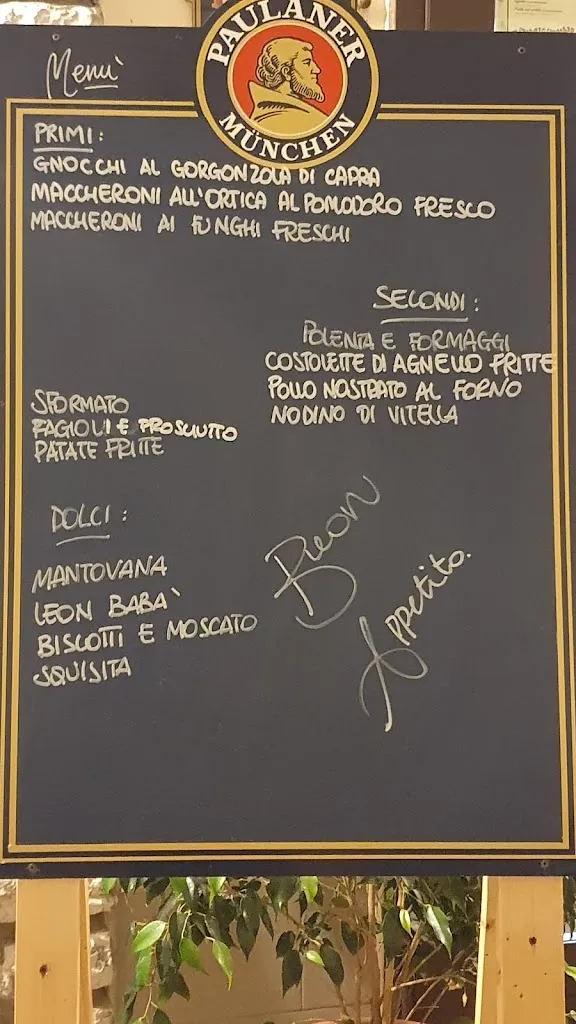 PAULANER
MÜNCHEN
Menù
PRIMI:
GNOCCHI AL GORGONZOLA DI CAPRA
MACCHERONI ALL'ORTICA AL POMODORO FRESCO
MACCHERONI AI FUNGHI FRESCHI
SECONDI:
POLENTA E FORMAGGI
COSTOLETTE DI AGNELLO FRITTE
POLLO NOSTRATO AL FORNO
NODINO DI VITELLA
SFORMATO
FAGIOLI E PROSCIUTTO
PATATE FRITTE
DOLCI:
MANTOVANA
LEON BABA'
BISCOTTI E MOSCATO
SQUISITA
Buon
Appetito.